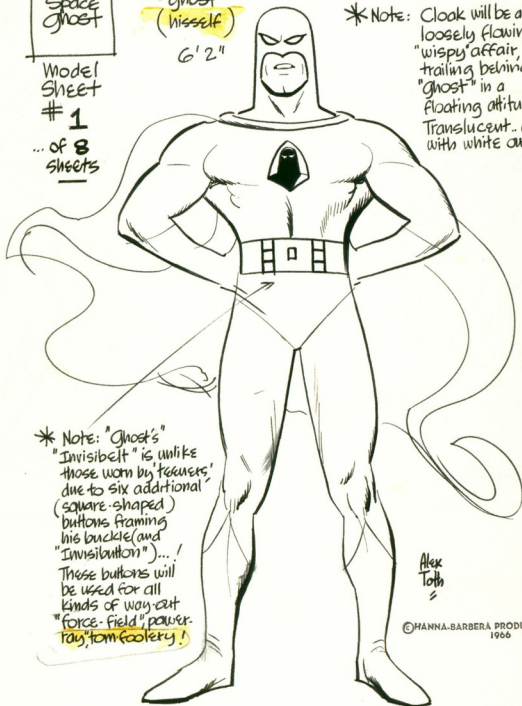 Space
Ghost
Model
Sheet
# 1
... of 8
sheets
"Ghost"
(hisself)
6' 2"
* Note: Cloak will be a
loosely flowin
"wispy" affair,
trailing behin
"ghost" in a
floating attitu
Translucent...
with white ou
* Note: "Ghost's"
"Invisibelt" is unlike
those worn by 'teeners'
due to six additional
(square-shaped)
buttons framing
his buckle (and
"Invisibutton")...!
These buttons will
be used for all
kinds of way-out
"force-field", power-
ray, "tom-foolery!
Alex
Toth
© HANNA-BARBERA PRODU
1966